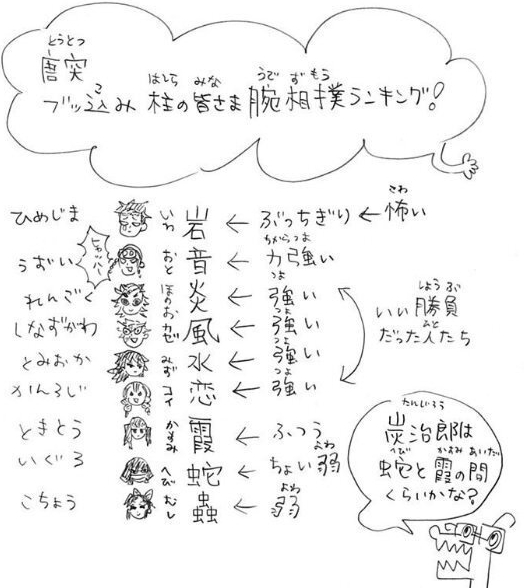 とうとつ
唐突
こ はしら みな うで ずもう
ブッ込み 柱の皆さま腕相撲ランキング!
ひめじま いわ 岩 ← ぶっちぎり ← 怖い
こわ
うずい ヒャッハー おと 音 ← 力強い
ちからつよ
れんごく ほのお 炎 ← 強い
つよ
しなずがわ カゼ 風 ← 強い
つよ
とみおか みず 水 ← 強い
つよ
かんろじ コイ 恋 ← 強い
つよ
しょうぶ
いい勝負
ひと
だった人たち
ときとう かすみ 霞 ← ふつう
いぐろ へび 蛇 ← ちょい弱
よわ
こちょう むし 蟲 ← 弱
よわ
たんじろう
炭治郎は
へび かすみ あいだ
蛇と霞の間
くらいかな?